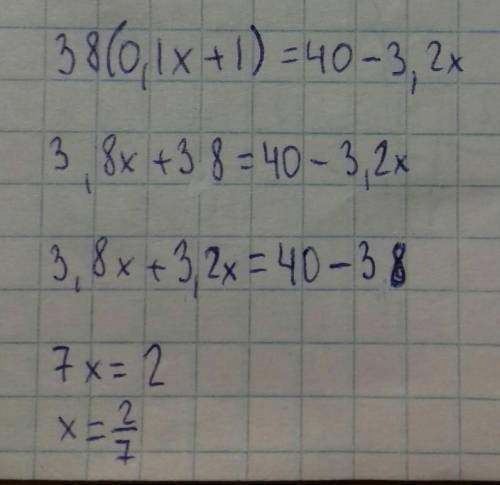 38(0,1x+1)=40-3,2x
3,8x+38=40-3,2x
3,8x+3,2x=40-38
7x=2
x=2/7